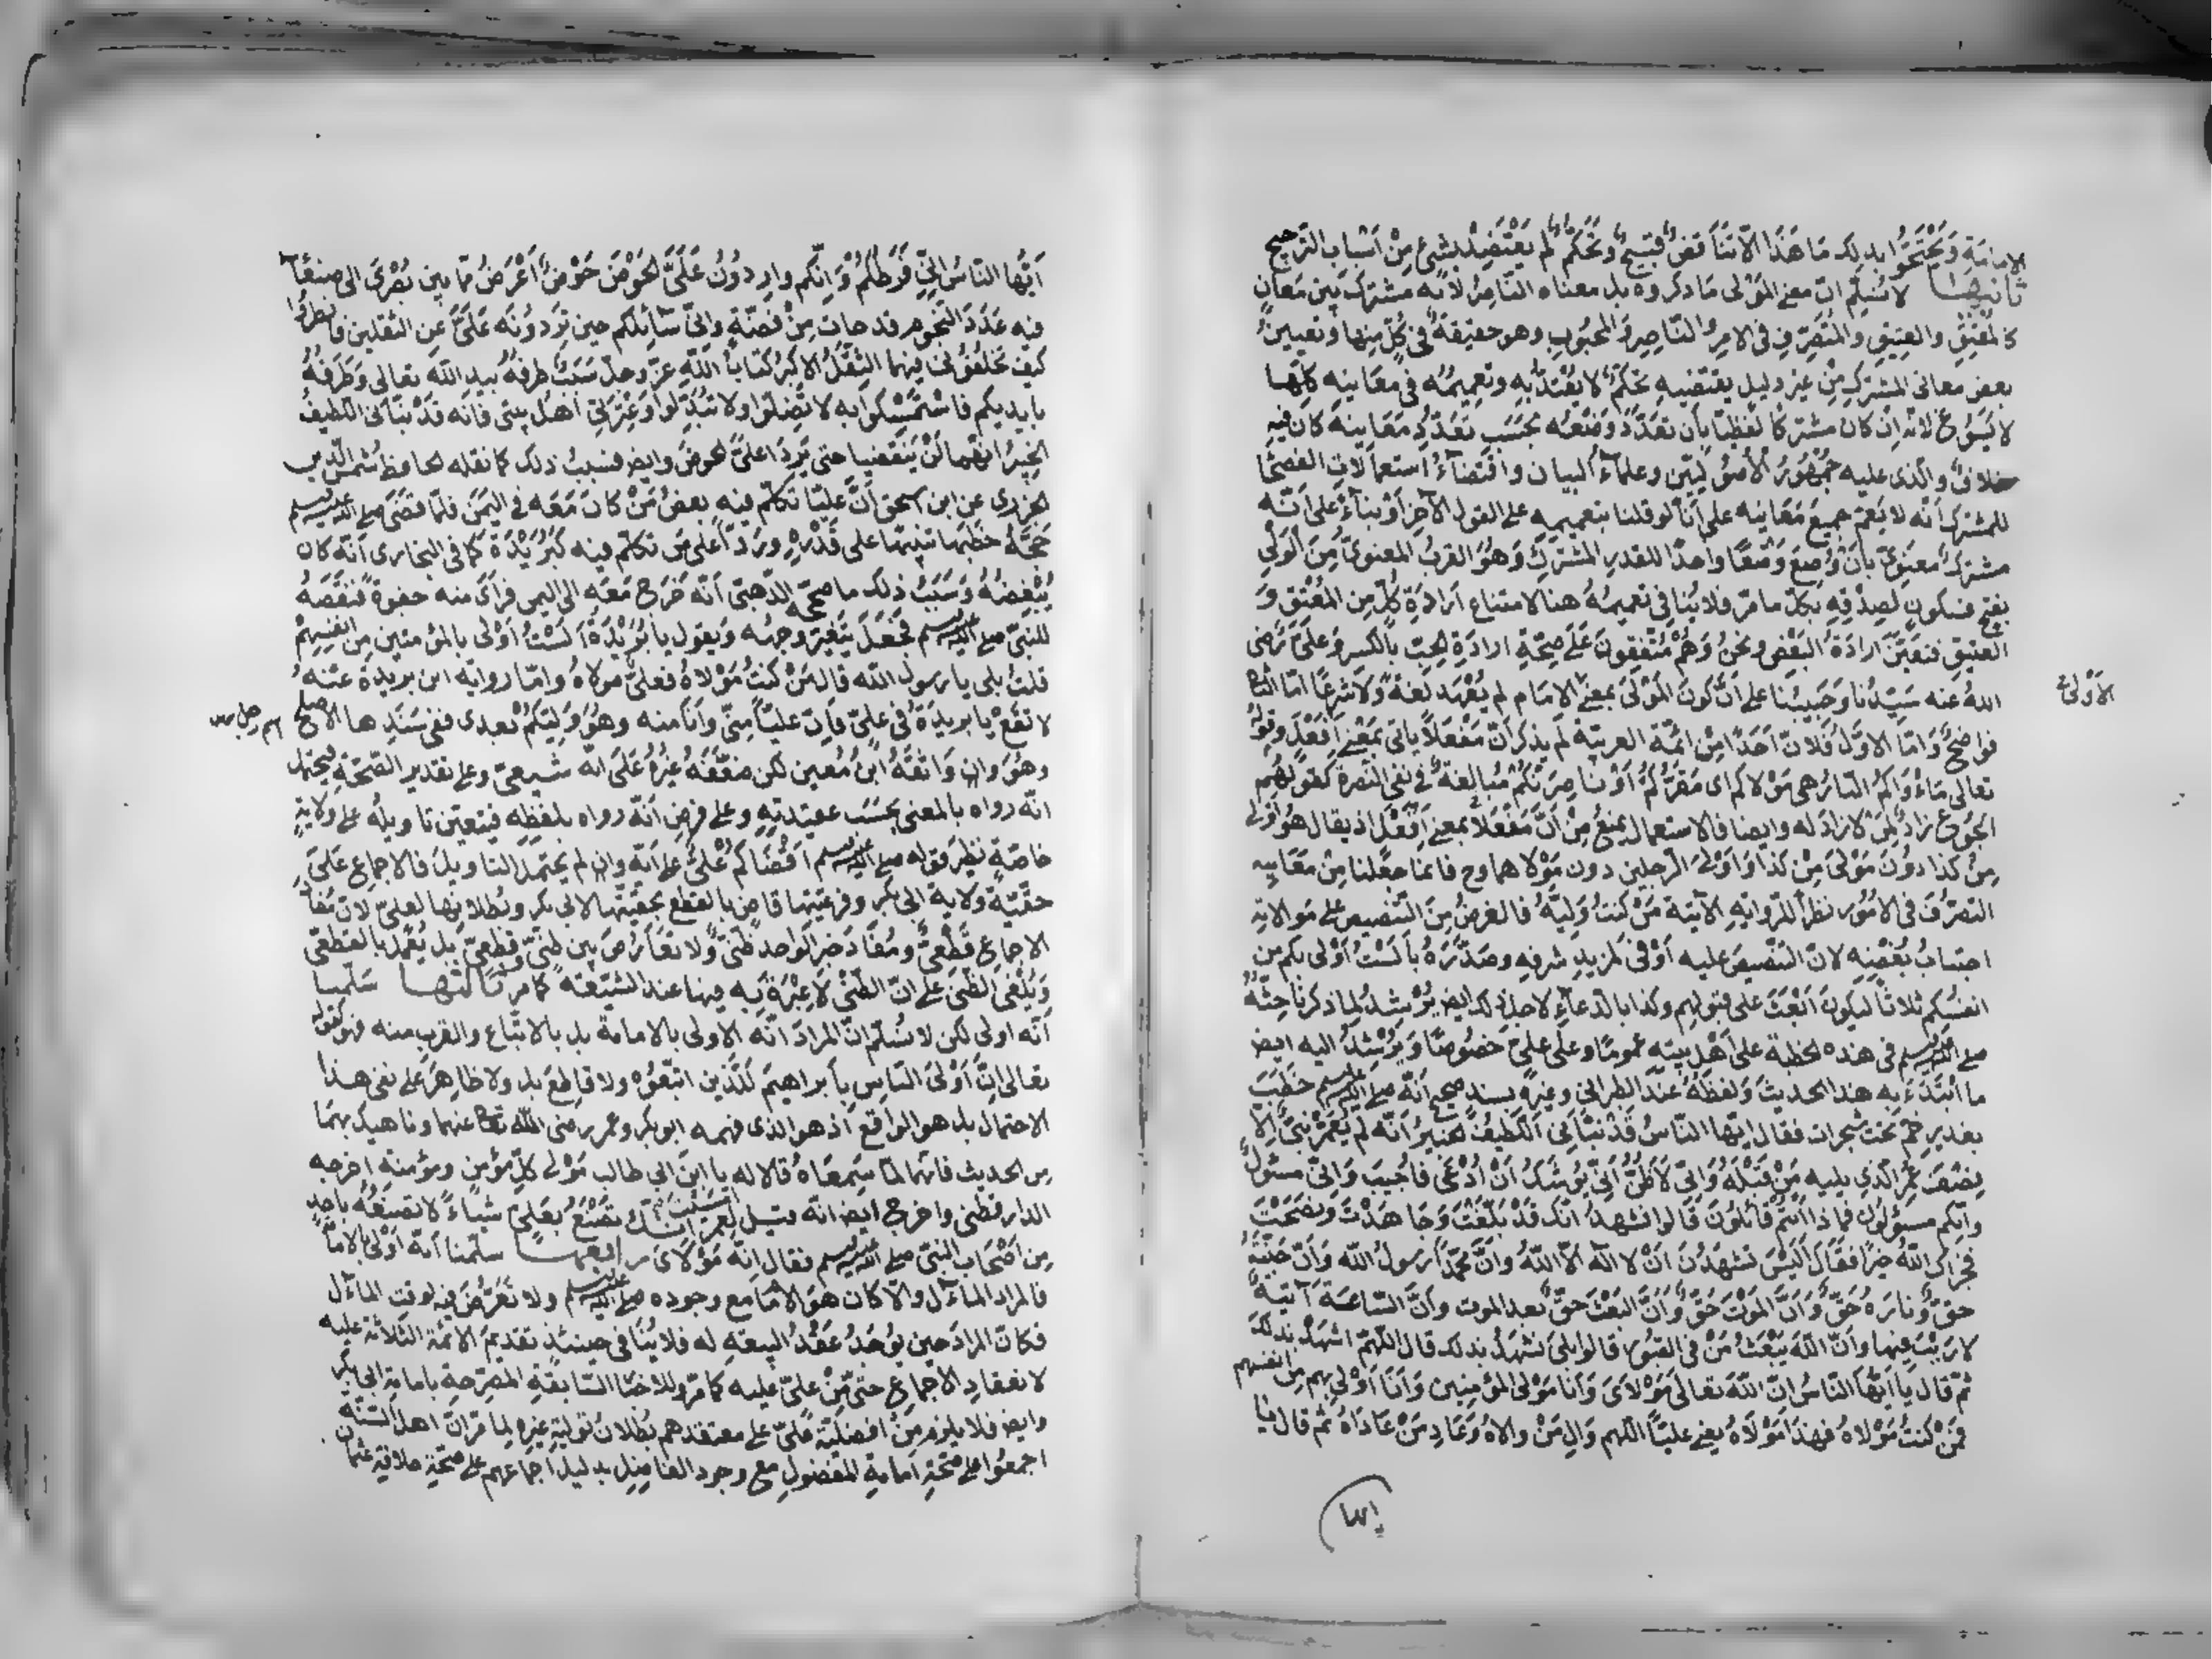 الإمامة ويحتجوا بذلك ما هذا إلا تناقض قبيح وتحكم لم يعتضد بشيء من أسباب الترجيح
ثانيها لا نسلم أن معنى المولى ما ذكروه بل معناه الناصر لأنه مشترك بين معان
كالمعتق والعتيق والمتصرف في الأمر والناصر والمحبوب وهو حقيقة في كل منها وتعيين
بعض معاني المشترك من غير دليل يقتضيه تحكم لا يعتد به وتعميمه في معانيه كلها
لا يسوغ لأنه إن كان مشتركا لفظيا بأن تعدد وضعه بحسب تعدد معانيه كان فيه
خلاف والذي عليه جمهور الأصوليين وعلماء البيان واقتضاء استعمالات الفصحا
للمشترك أنه لا يعم جميع معانيه على أنا لو قلنا بتعميمه على القول الآخر أو بناء على أنه
مشترك معنوي بأن وضع وضعا واحدا للقدر المشترك وهو القرب المعنوي من الولي
بفتح فسكون لصدقه بكل ما مر فلا يتأتى تعميمه هنا لامتناع إرادة كل من المعتق و
العتيق فتعين إرادة البعض ونحن وهم متفقون على صحة إرادة الحب بالكسر وعلي رضي
الله عنه سيدنا وحبيبنا على أن كون المولى بمعنى الإمام لم يعهد لغة ولا شرعا أما الثاني
فواضح وأما الأول فلأن أحدا من أئمة العربية لم يذكر أن مفعلا يأتي بمعنى أفعل وقوله
تعالى مأواكم النار هي مولاكم أي مقركم أو ناصرتكم مبالغة في نفي النصرة كقولهم
الجوع زاد من لا زاد له وأيضا فالاستعمال يمنع من أن مفعلا بمعنى أفعل إذ يقال هو أولى
من كذا دون مولى من كذا وأولى الرجلين دون مولاهما وح فإنما جعلنا من معانيه
التصرف في الأمور نظرا للرواية الآتية من كنت وليه فالغرض من التنصيص على موالاته
اجتناب بغضه لأن التنصيص عليه أوفى لمزيد شرفه وصدره بألست أولى بكم من
أنفسكم ثلاثا ليكون أبعث على قبولهم وكذا بالدعاء لأجل ذلك أيض يرشد لما ذكرنا حثه
صلى الله عليه وسلم في هذه الخطبة على أهل بيته عموما وعلى علي خصوصا ويرشد إليه أيض
ما ابتدء به هذا الحديث ولفظه عند الطبراني وغيره بسند صحيح أنه صلى الله عليه وسلم خطب
بغدير خم تحت شجرات فقال أيها الناس قد نبأني اللطيف الخبير أنه لم يعمر نبي إلا
نصف عمر الذي يليه من قبله وإني لأظن أني يوشك أن أدعى فأجيب وإني مسئول
وإنكم مسئولون فماذا أنتم قائلون قالوا نشهد أنك قد بلغت وجاهدت ونصحت
فجزاك الله خيرا فقال أليس تشهدون أن لا إله إلا الله وأن محمدا رسول الله وأن جنته
حق وناره حق وأن الموت حق وأن البعث حق بعد الموت وأن الساعة آتية
لا ريب فيها وأن الله يبعث من في القبور قالوا بلى نشهد بذلك قال اللهم اشهد بذلك
ثم قال يا أيها الناس إن الله تعالى مولاي وأنا مولى المؤمنين وأنا أولى بهم من أنفسهم
فمن كنت مولاه فهذا مولاه يعني عليا اللهم وال من والاه وعاد من عاداه ثم قال يا
الأولى
أيها الناس إني فرطكم وإنكم واردون على الحوض حوض أعرض مما بين بصرى إلى صنعآ
فيه عدد النجوم قدحات من فضة وإني سائلكم حين تردونه علي عن الثقلين فانظروا
كيف تخلفوني فيهما الثقل الأكبر كتاب الله عز وجل سبب طرفه بيد الله تعالى وطرفه
بأيديكم فاستمسكوا به لا تضلوا ولا تبدلوا وعترتي أهل بيتي فإنه قد نبأني اللطيف
الخبير أنهما لن ينقضيا حتى يردا علي الحوض وأيض فسبب ذلك كما نقله الحافظ شمس الدين
الجزري عن ابن اسحق أن عليا تكلم فيه بعض من كان معه في اليمن فلما قضى صلى الله عليه وسلم
حجه خطبها تنبيها على قدره وردا على من تكلم فيه كبريدة كما في البخاري أنه كان
يبغضه وسبب ذلك ما صححه الذهبي أنه خرج معه إلى اليمن فرأى منه جفوة فنقصه
للنبي صلى الله عليه وسلم فجعل يتغير وجهه ويقول يا بريدة ألست أولى بالمؤمنين من أنفسهم
قلت بلى يا رسول الله قال من كنت مولاه فعلي مولاه وأما رواية ابن بريدة عنه
لا تقع يا بريدة في علي فإن عليا مني وأنا منه وهو وليكم بعدي ففي سندها الأجلح
وهو وإن وثقه ابن معين لكن ضعفه غيره على أنه شيعي وعلى تقدير الصحة فيحتمل
أنه رواه بالمعنى بحسب عقيدته وعلى فرض أنه رواه بلفظه فيتعين تأويله على ولاية
خاصة نظير قوله صلى الله عليه وسلم أقضاكم علي على أنه وإن لم يحتمل التأويل فالإجماع على
حقية ولاية أبي بكر وفرعيتها قاض بالقطع بحقيتها لأبي بكر وبطلانها لعلي لأن مفاد
الإجماع قطعي ومفاد خبر الواحد ظني ولا تعارض بين ظني وقطعي بل يعمل بالقطعي
ويلغى الظني على أن الظني لا عبرة به فيها عند الشيعة كما مر ثالثها سلمنا
أنه أولى لكن لا نسلم أن المراد أنه الأولى بالإمامة بل بالاتباع والقرب منه فهو كقوله
تعالى إن أولى الناس بابراهيم للذين اتبعوه ولا قاطع بل ولا ظاهر على نفي هذا
الاحتمال بل هو الواقع إذ هو الذي فهمه أبو بكر وعمر رضي الله تعالى عنهما وناهيك بهما
من الحديث فإنهما لما سمعاه قالا له يا ابن أبي طالب مولى كل مؤمن ومؤمنة أخرجه
الدارقطني وأخرج أيض أنه قيل لعمر إنك تصنع بعلي شياء لا تصنعه بأحد
من أصحاب النبي صلى الله عليه وسلم فقال إنه مولاي رابعها سلمنا أنه أولى بالامامة
فالمراد المآل وإلا كان هو الإمام مع وجوده صلى الله عليه وسلم ولا تعرض فيه لوقت المآل
فكان المراد حين يوجد عقد البيعة له فلا ينافي حينئذ تقديم الأئمة الثلاثة عليه
لانعقاد الإجماع حتى من علي عليه كما مر وللأخبار السابقة المصرحة بإمامة أبي بكر
وأيض فلا يلزم من أفضلية علي على معتقدهم بطلان تولية غيره لما مر أن أهل السنة
أجمعوا على صحة إمامة المفضول مع وجود الفاضل بدليل إجماعهم على صحة خلافة عثمان